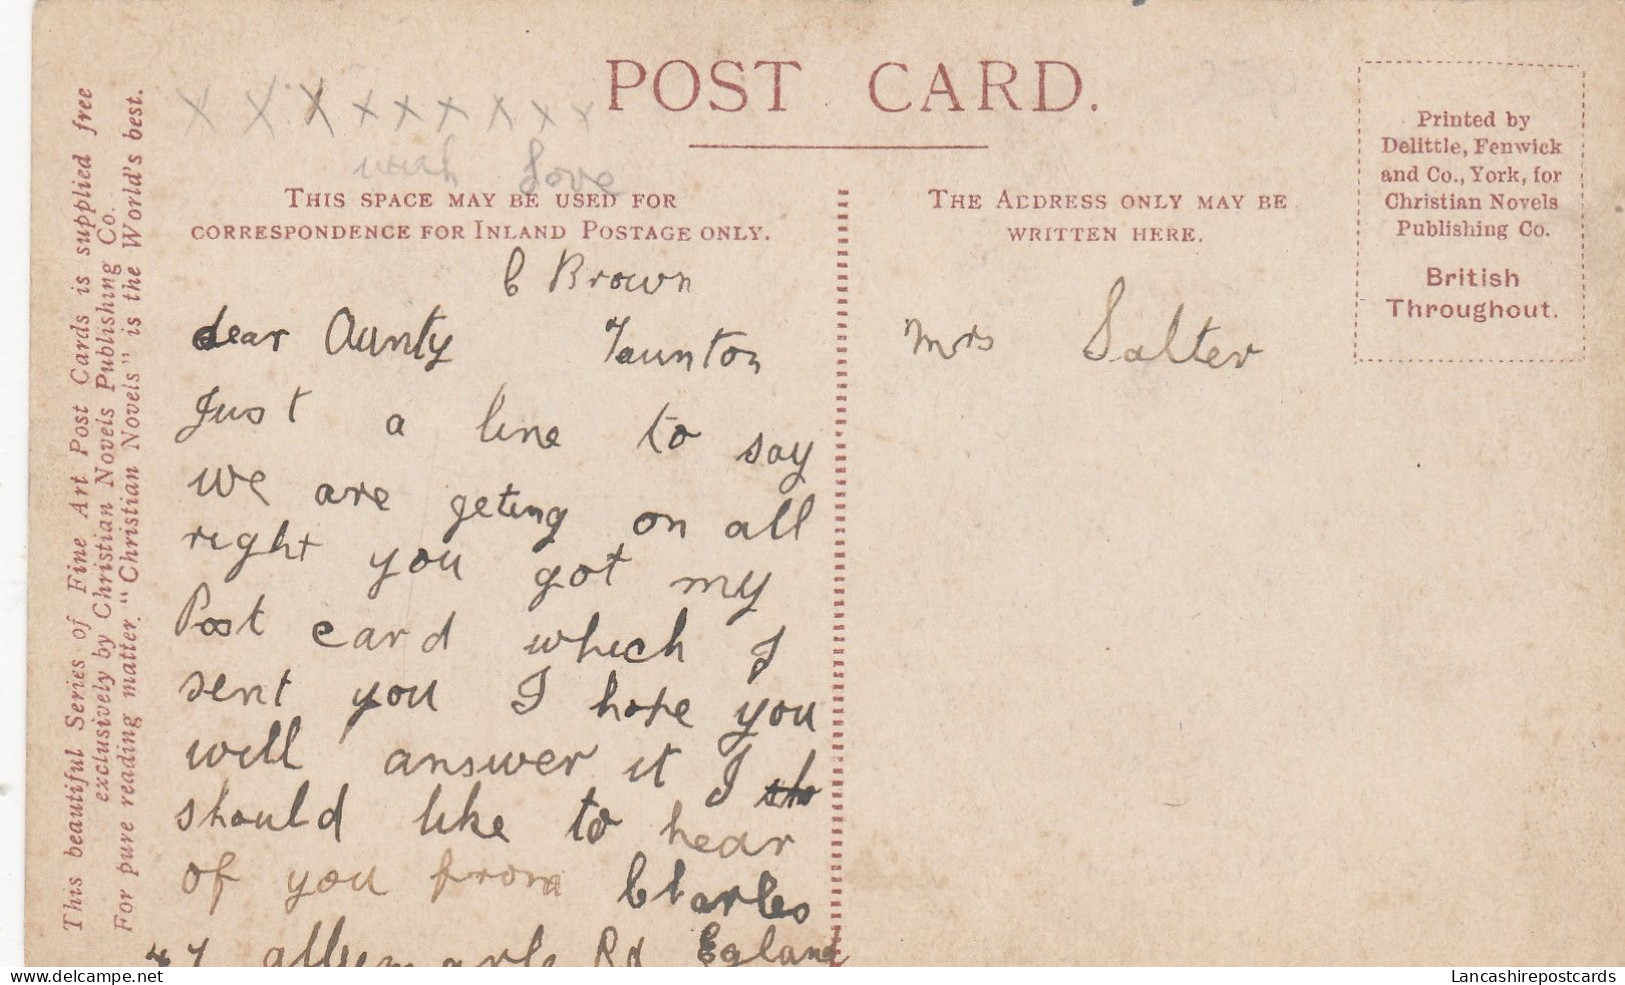 POST CARD.
x x x x x x x x x
with Love
THIS SPACE MAY BE USED FOR
CORRESPONDENCE FOR INLAND POSTAGE ONLY.
C Brown
dear Aunty Taunton
Just a line to say
we are geting on all
right you got my
Post card which I
sent you I hope you
will answer it I sho
should like to hear
of you from Charles
47 allbemarle Rd Egland
THE ADDRESS ONLY MAY BE
WRITTEN HERE.
Mrs Salter
Printed by
Delittle, Fenwick
and Co., York, for
Christian Novels
Publishing Co.
British
Throughout.
This beautiful Series of Fine Art Post Cards is supplied free
exclusively by Christian Novels Publishing Co.
For pure reading matter. "Christian Novels" is the World's best.
Lancashirepostcards